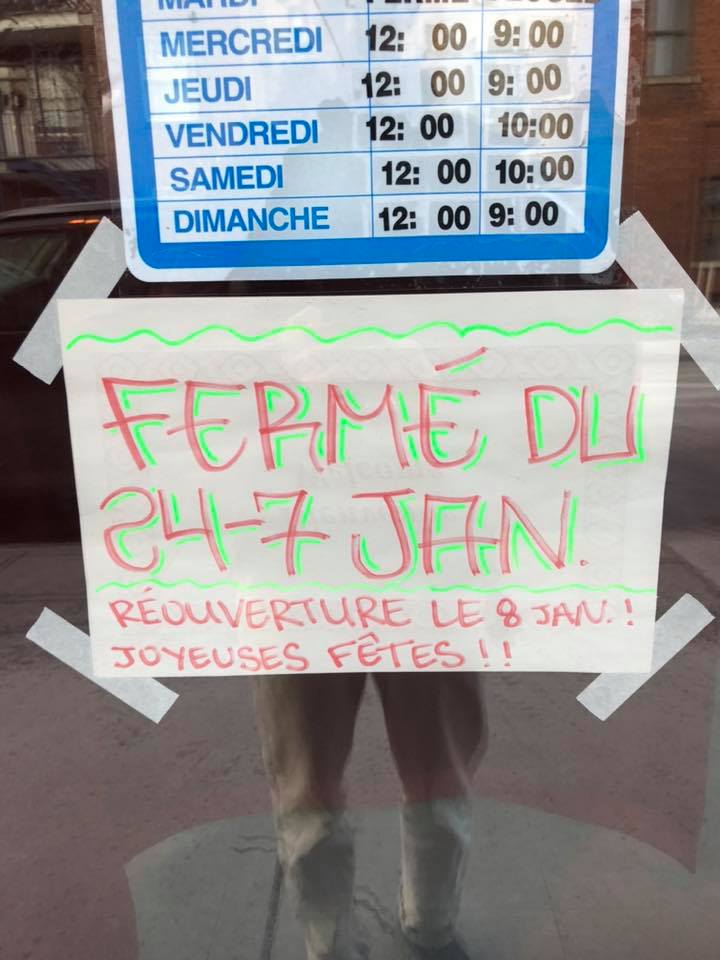 MARDI FERMÉ
MERCREDI 12: 00 9: 00
JEUDI 12: 00 9: 00
VENDREDI 12: 00 10:00
SAMEDI 12: 00 10: 00
DIMANCHE 12: 00 9: 00
FERMÉ DU
24-7 JAN.
RÉOUVERTURE LE 8 JAN. !
JOYEUSES FÊTES !!